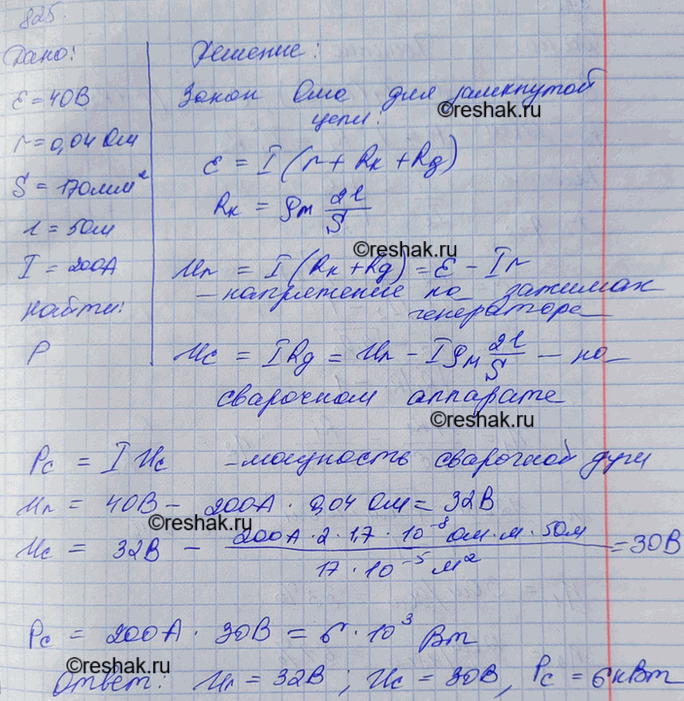 825
Дано:
Решение:
ε = 40В
r = 0,04 Ом
S = 170мм²
l = 50м
I = 200А
Найти:
P
Закон Ома для замкнутой
цепи:
©reshak.ru
ε = I (r + Rк + Rд)
Rк = ρм 2l/S
©reshak.ru
Uг = I (Rк + Rд) = ε - Ir
- напряжение на зажимах
генератора
Uс = I Rд = Uг - Iρм 2l/S - на
сварочном аппарате
©reshak.ru
Pс = I Uс - мощность сварочной дуги
Uг = 40В - 200А · 0,04 Ом = 32В
©reshak.ru
Uс = 32В - 200А · 2 · 1,7 · 10⁻⁸ Ом · м · 50м / 17 · 10⁻⁵ м² = 30В
Pс = 200А · 30В = 6 · 10³ Вт
©reshak.ru
Ответ: Uг = 32В ; Uс = 30В , Pс = 6кВт